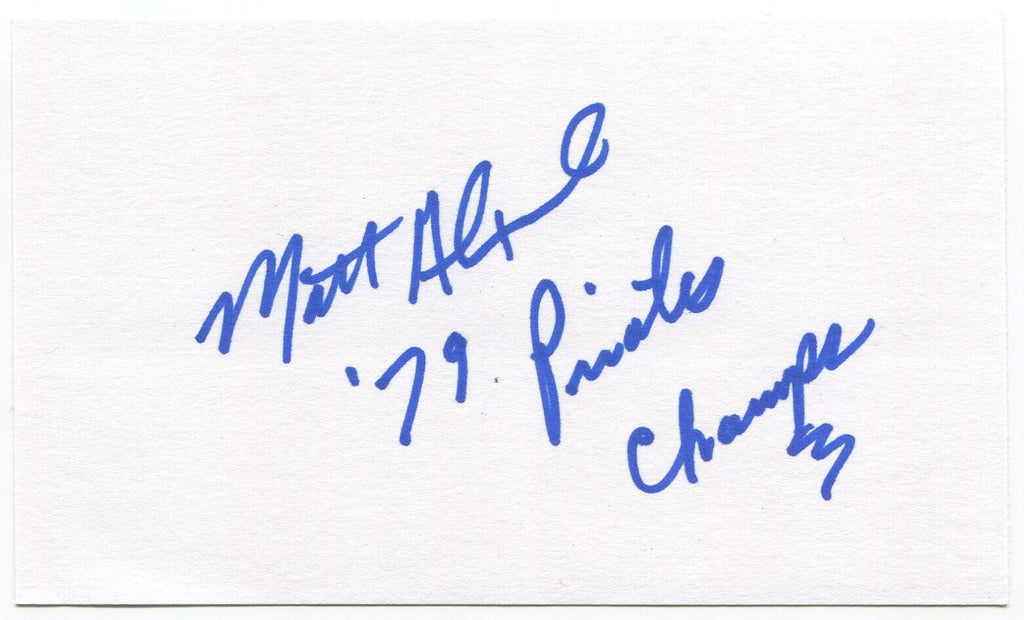 Matt Alexander
'79 Pirates
Champs